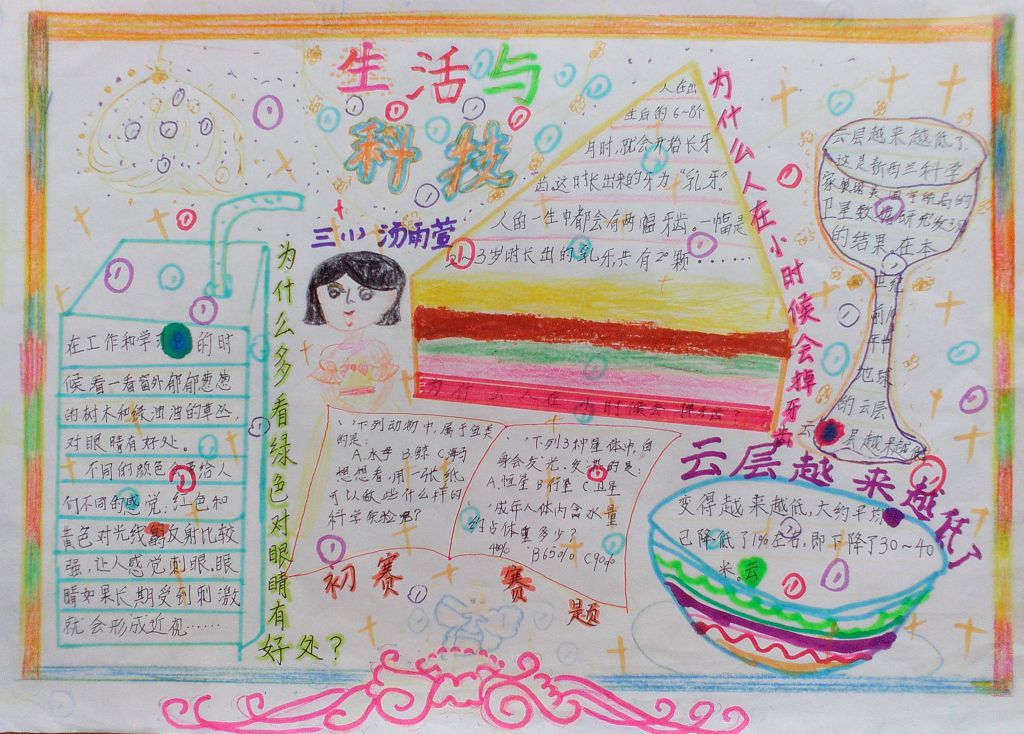 生活与
科技
三(1) 汤雨萱
为什么多看绿色对眼睛有
好处？
在工作和学习 的时
候,看一看窗外郁郁葱葱
的树木和绿油油的草丛,
对眼睛有好处。
不同的颜色 给人
们不同的感觉:红色和
黄色对光线的反射比较
强,让人感觉刺眼.眼
睛如果长期受到刺激
就会形成近视……
人在出
生后的6~8个
月时,就会开始长牙
齿.这时长出来的牙为“乳牙”.
人的一生中都会有两幅牙齿。一幅是
~3岁时长出的乳牙共有20颗……
为什么人在小时候会掉牙齿？
为什么人在小时候会掉牙齿
下列动物中,属于鱼类
的是:
A.水 B.鲸 C.海
想想看,用一张纸
可以做些什么样的
科学实验呢?
下列3种星体中,自
身会发光、发 的是:
A.恒星 B.行星 C.卫星
成年人体内含水量
约占体重多少?
40% B65% C90%
初赛 赛题
云层越来越低了
云层越来越低了,
这是新西兰科学
家 局的
卫星数据研究发
的结果.在本
世纪
前
年中
地球
的云层
云 层越来越低
变得越来越低,大约平均
已降低了1%左右,即下降了30~40
米。云